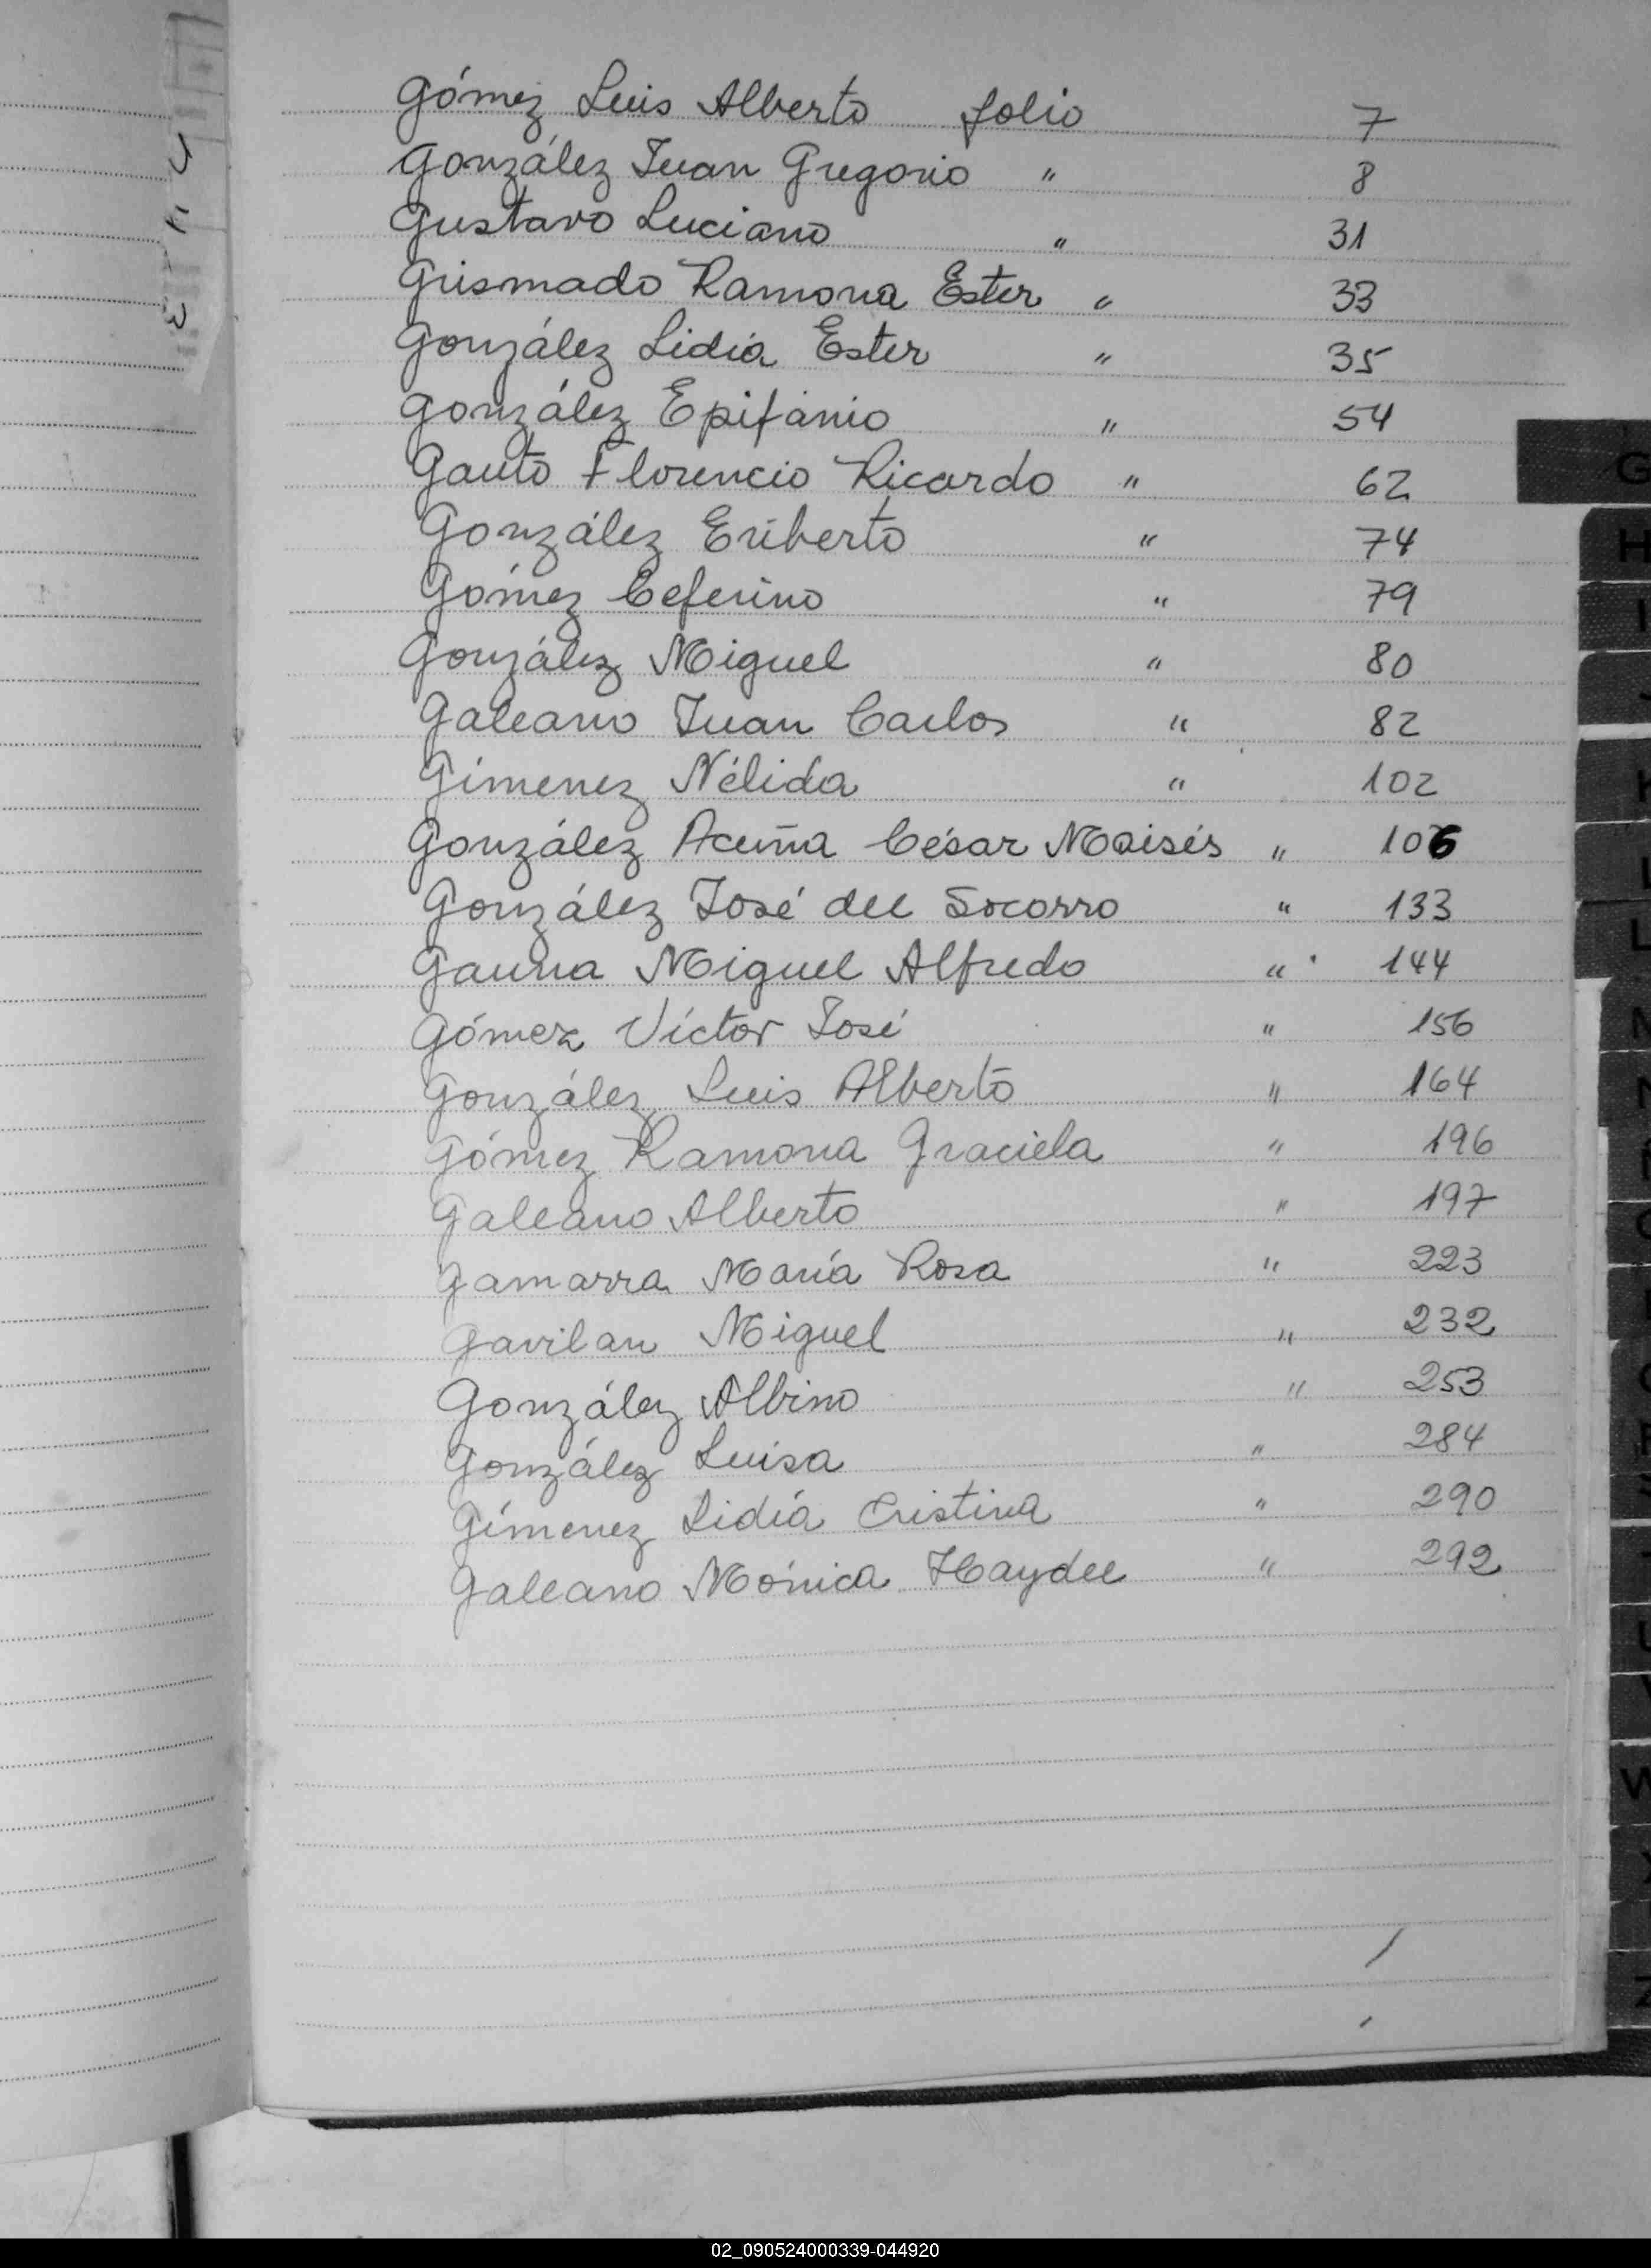 Gómez Luis Alberto folio 7
González Juan Gregorio " 8
Gustavo Luciano " 31
Grismado Ramona Ester " 33
González Lidia Ester " 35
González Epifanio " 54
Gauto Florencio Ricardo " 62
González Eriberto " 74
Gómez Ceferino " 79
González Miguel " 80
Galeano Juan Carlos " 82
Gimenez Nélida " 102
González Acuña César Moisés " 106
González José del Socorro " 133
Gauna Miguel Alfredo " 144
Gómez Víctor José " 156
González Luis Alberto " 164
Gómez Ramona Graciela " 196
Galeano Alberto " 197
Gamarra María Rosa " 223
Gavilan Miguel " 232
González Albino " 253
González Luisa " 284
Gímenez Lidia Cristina " 290
Galeano Mónica Haydee " 292
G
H
I
L
W
02_090524000339-044920